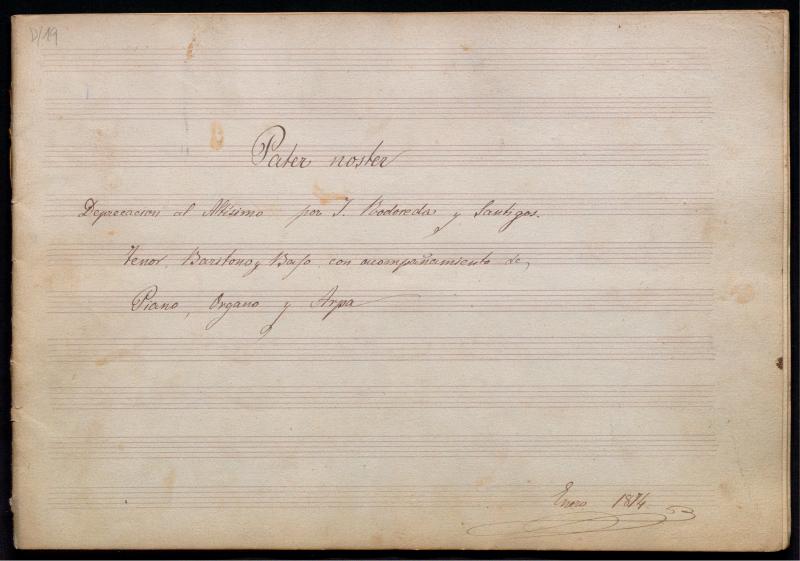 D/19
Pater noster
Deprecacion al Altísimo por J. Rodoreda y Santigos.
Tenor, Baritono y Bajo, con acompañamiento de,
Piano, Organo y Arpa
Enero 1874